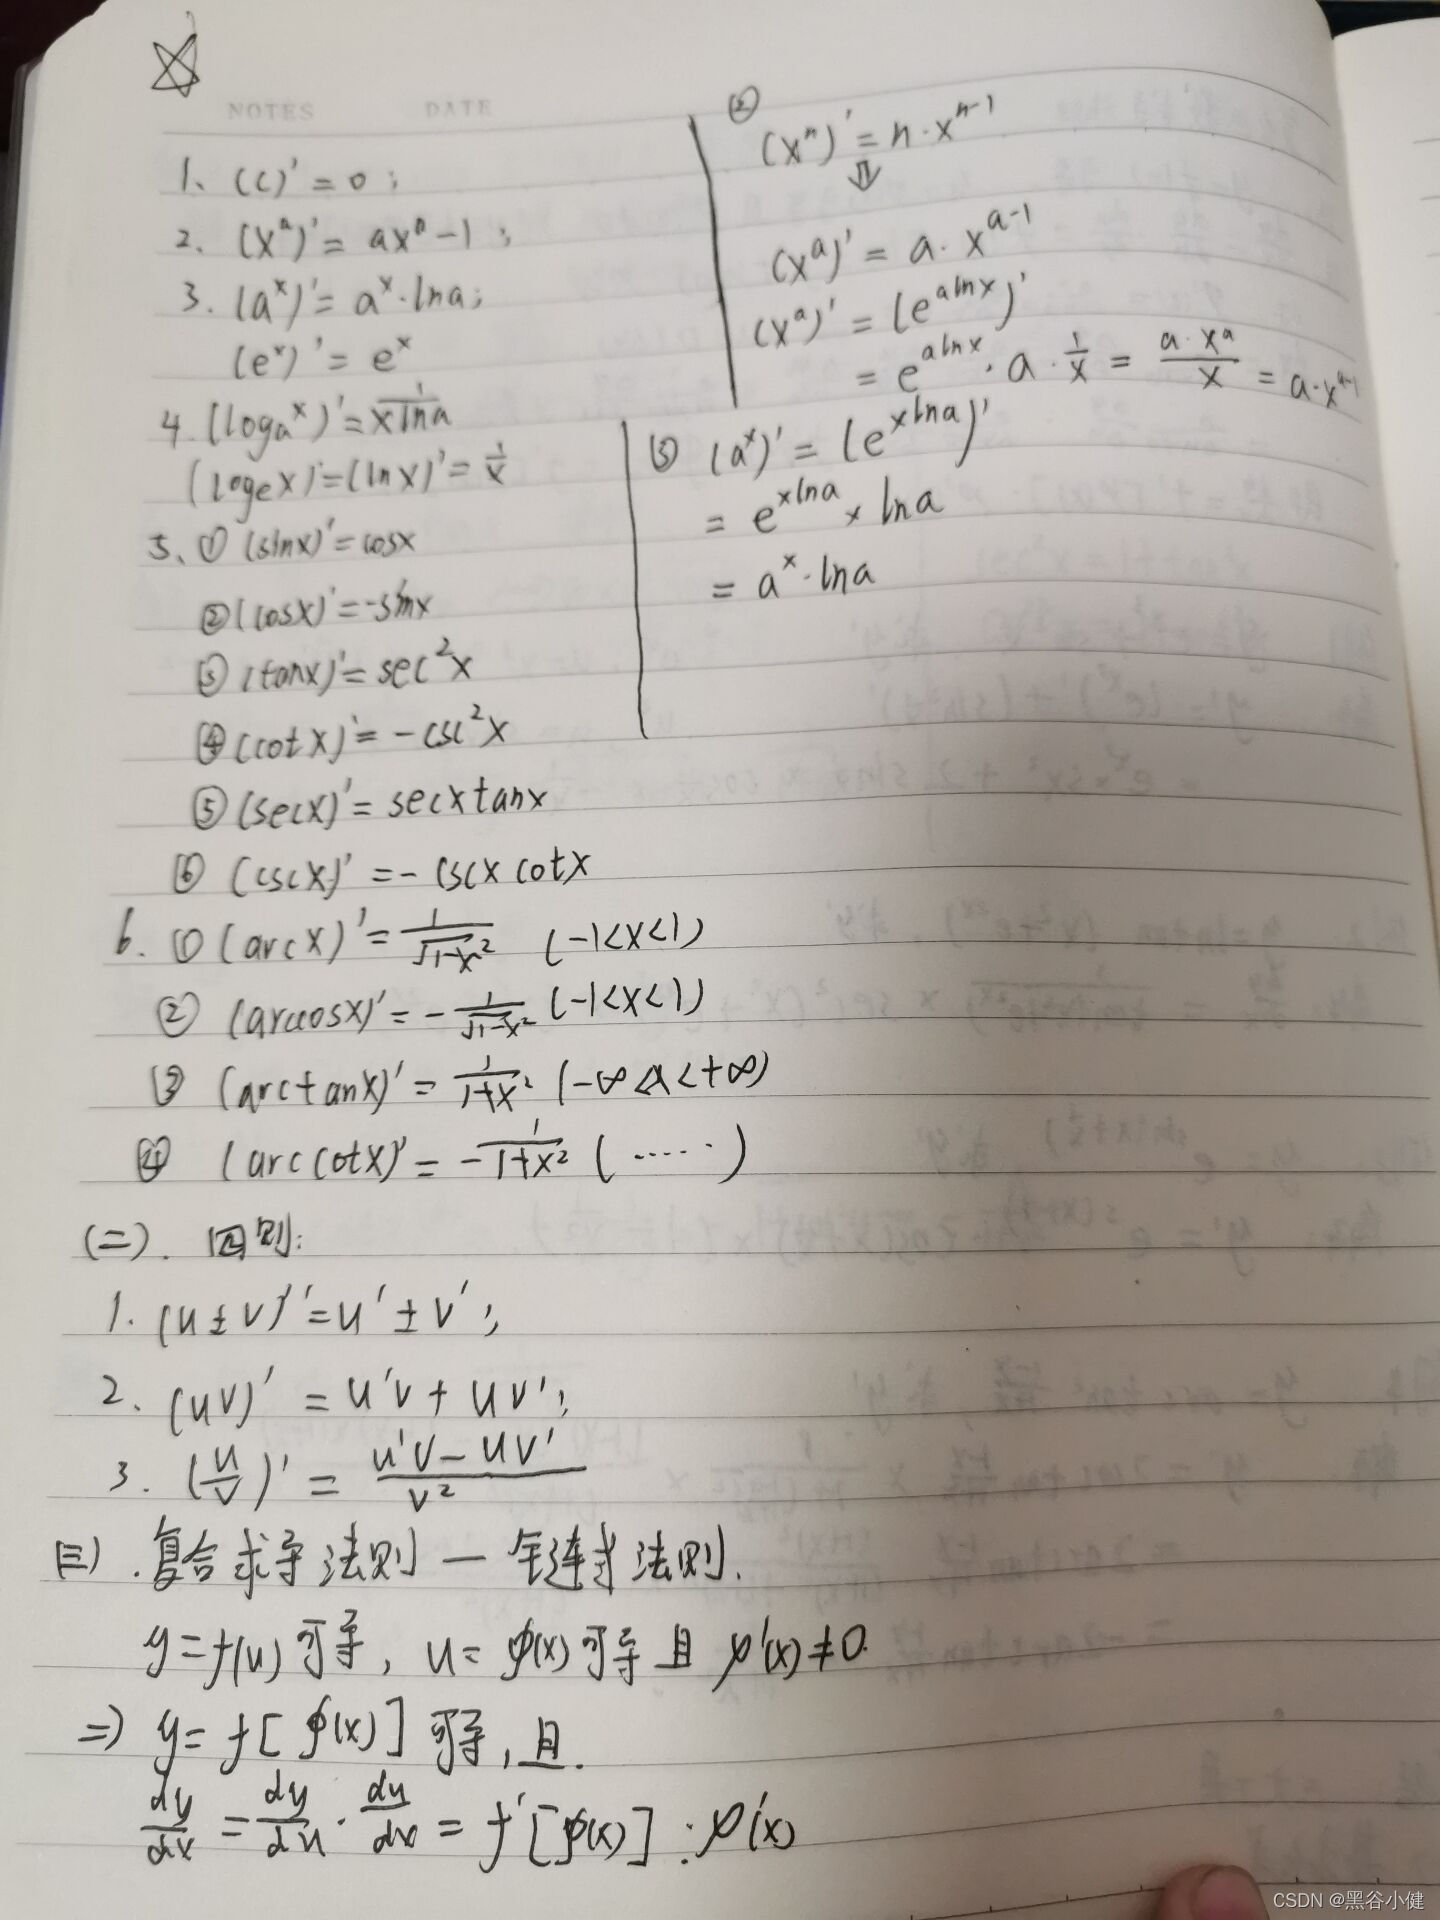 NOTES DATE
1、(C)'=0；
2. (x^a)'=ax^a-1；
3. (a^x)'=a^x·lna；
(e^x)'=e^x
4. (log_a^x)'=1/(xlna)
(log_e x)'=(lnx)'=1/x
5、① (sinx)'=cosx
② (cosx)'=-sinx
③ (tanx)'=sec^2x
④ (cotx)'=-csc^2x
⑤ (secx)'=secxtanx
⑥ (cscx)'=-cscxcotx
6. ① (arcx)'=1/√(1-x^2) (-1<x<1)
② (arccosx)'=-1/√(1-x^2) (-1<x<1)
③ (arctanx)'=1/(1+x^2) (-∞<x<+∞)
④ (arccotx)'=-1/(1+x^2) (·····)
② (x^n)'=n·x^(n-1)
⇓
(x^a)'=a·x^(a-1)
(x^a)'=(e^(alnx))'
=e^(alnx)·a·1/x=(a·x^a)/x=a·x^(a-1)
③ (a^x)'=(e^(xlna))'
=e^(xlna)×lna
=a^x·lna
(二). 四则:
1. (u±v)'=u'±v'；
2. (uv)'=u'v+uv'；
3. (u/v)'=(u'v-uv')/v^2
(三).复合求导法则—
法则.
y=f(u)可导，u=φ(x)可导且φ'(x)≠0.
⇒y=f[φ(x)]可导，且.
dy/dx=dy/du·du/dx=f'[φ(x)]·φ'(x)
CSDN @黑谷小健